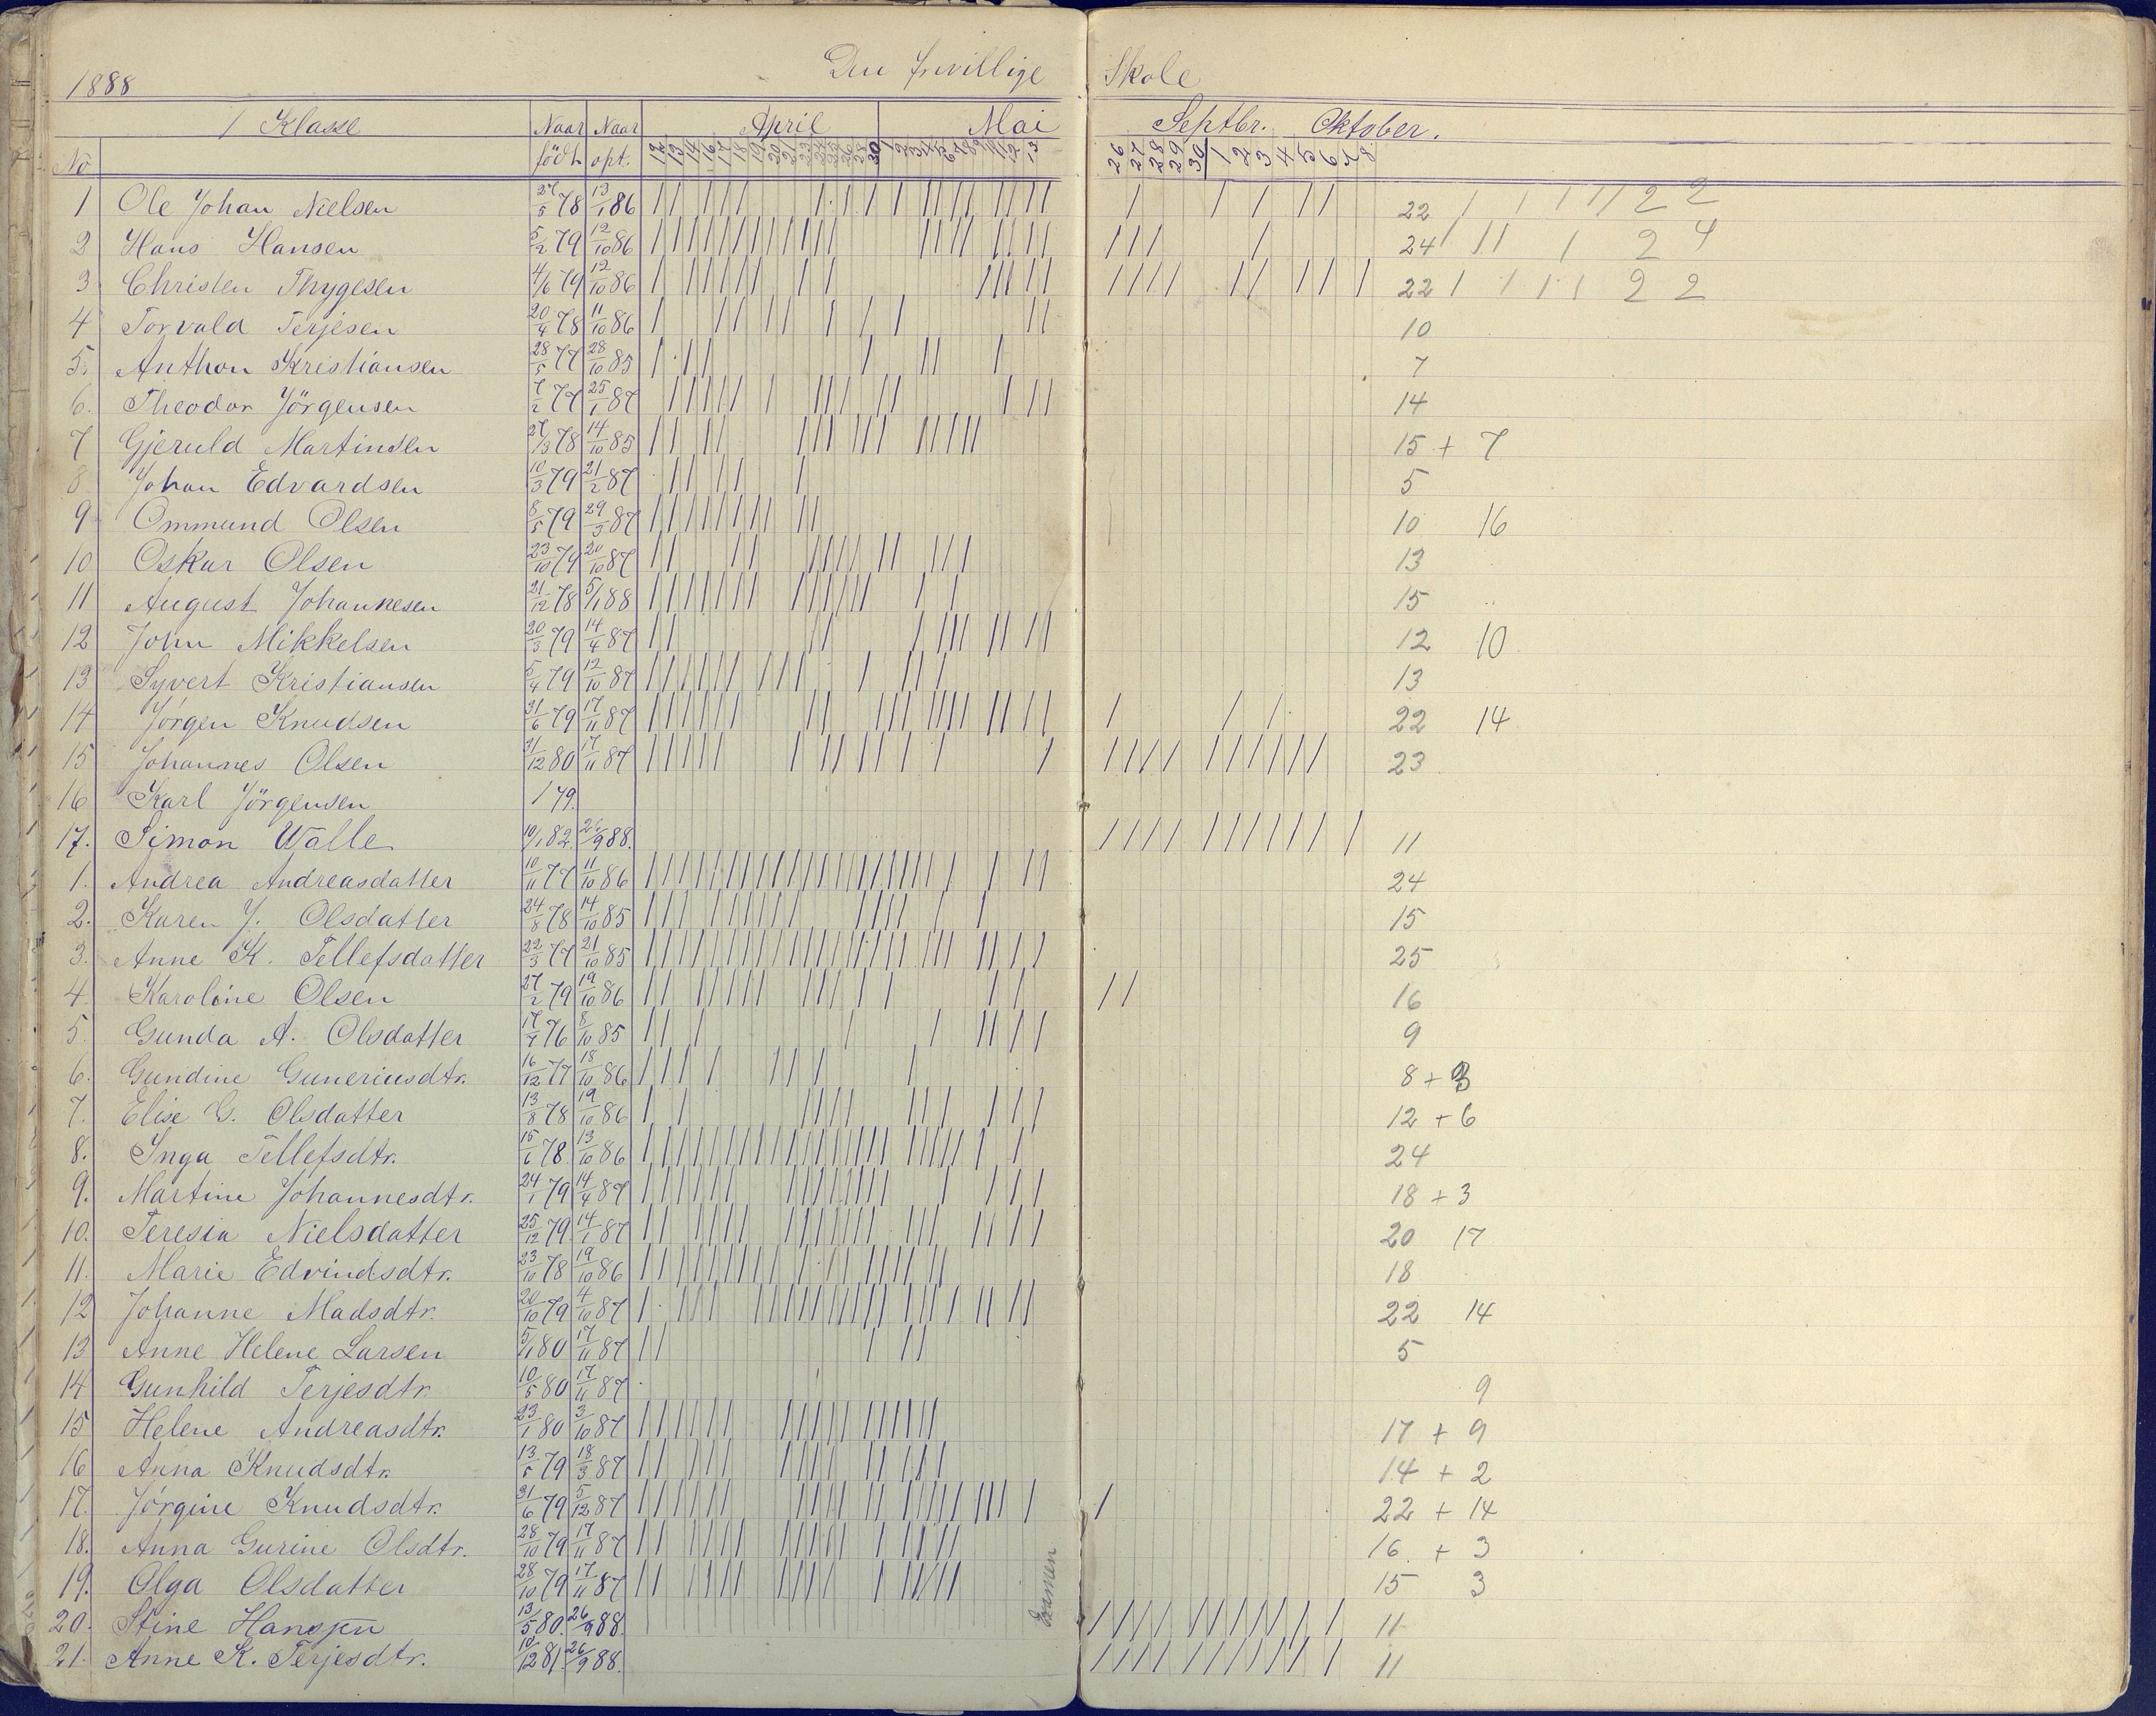 1888 Den frivillige Skole
1 Klasse Naar Naar April Mai Septbr. Oktober.
No født opt. 12 13 14 16 30 1 2 12 13 26 27 28 29 30 1 2 3 4 5 6 7 8
1 Ole Johan Nielsen 27/5 78 13/1 86 22 2 2
2 Hans Hansen 5/2 79 12/10 86 24 2 4
3 Christen Thygesen 4/6 79 12/10 86 22 2 2
4 Torvald Terjesen 20/4 78 11/10 86 10
5. Anthon Kristiansen 28/5 77 28/10 85 7
6. Theodor Jörgensen 7/2 77 25/1 87 14
7 Gjeruld Martinsen 27/3 78 14/10 85 15 + 7
8 Johan Edvardsen 10/3 79 21/2 87 5
9 Ommund Olsen 8/5 79 29/3 87 10 16
10 Oskar Olsen 23/10 79 20/10 87 13
11 August Johannesen 21/12 78 5/1 88 15
12 John Mikkelsen 20/3 79 14/4 87 12 10
13 Syvert Kristiansen 5/4 79 12/10 87 13
14 Jörgen Knudsen 21/6 79 17/11 87 22 14
15 Johannes Olsen 21/12 80 17/11 87 23
16 Karl Jörgensen 1 79.
17. Simon Walle 10/1 82. 26/9 88. 11
1. Andrea Andreasdatter 10/11 77 11/10 86 24
2. Karen J. Olsdatter 24/8 78 14/10 85 15
3. Anne K. Tellefsdatter 22/3 77 21/10 85 25
4. Karoline Olsen 27/2 79 19/10 86 16
5. Gunda A. Olsdatter 17/7 76 8/10 85 9
6. Gundine Guneriusdtr. 16/12 77 18/10 86 8 + 3
7. Elise G. Olsdatter 13/8 78 19/10 86 12 + 6
8. Inga Tellefsdtr. 15/6 78. 13/10 86 24
9. Martine Johannesdtr. 24/1 79 14/4 87 18 + 3
10. Teresia Nielsdatter 25/12 79. 14/1 87 20 17
11. Marie Edvindsdtr. 23/10 78 19/10 86 18
12 Johanne Madsdtr. 20/10 79 4/10 87 22 14
13 Anne Helene Larsen 5/1 80 17/11 87 5
14 Gunhild Terjesdtr. 10/5 80 17/11 87 9
15 Helene Andreasdtr. 23/1 80 3/10 87 17 + 9
16 Anna Knudsdtr. 13/5 79 18/3 87 14 + 2
17. Jörgine Knudsdtr. 21/6 79 5/12 87 22 + 14
18. Anna Gurine Olsdtr. 28/10 79 17/11 87 16 + 3
19. Olga Olsdatter 28/10 79 17/11 87 15 3
20. Stine Hansen 13/5 80. 26/9 88. 11
21. Anne K. Terjesdtr. 10/12 81. 26/9 88. 11
Examen